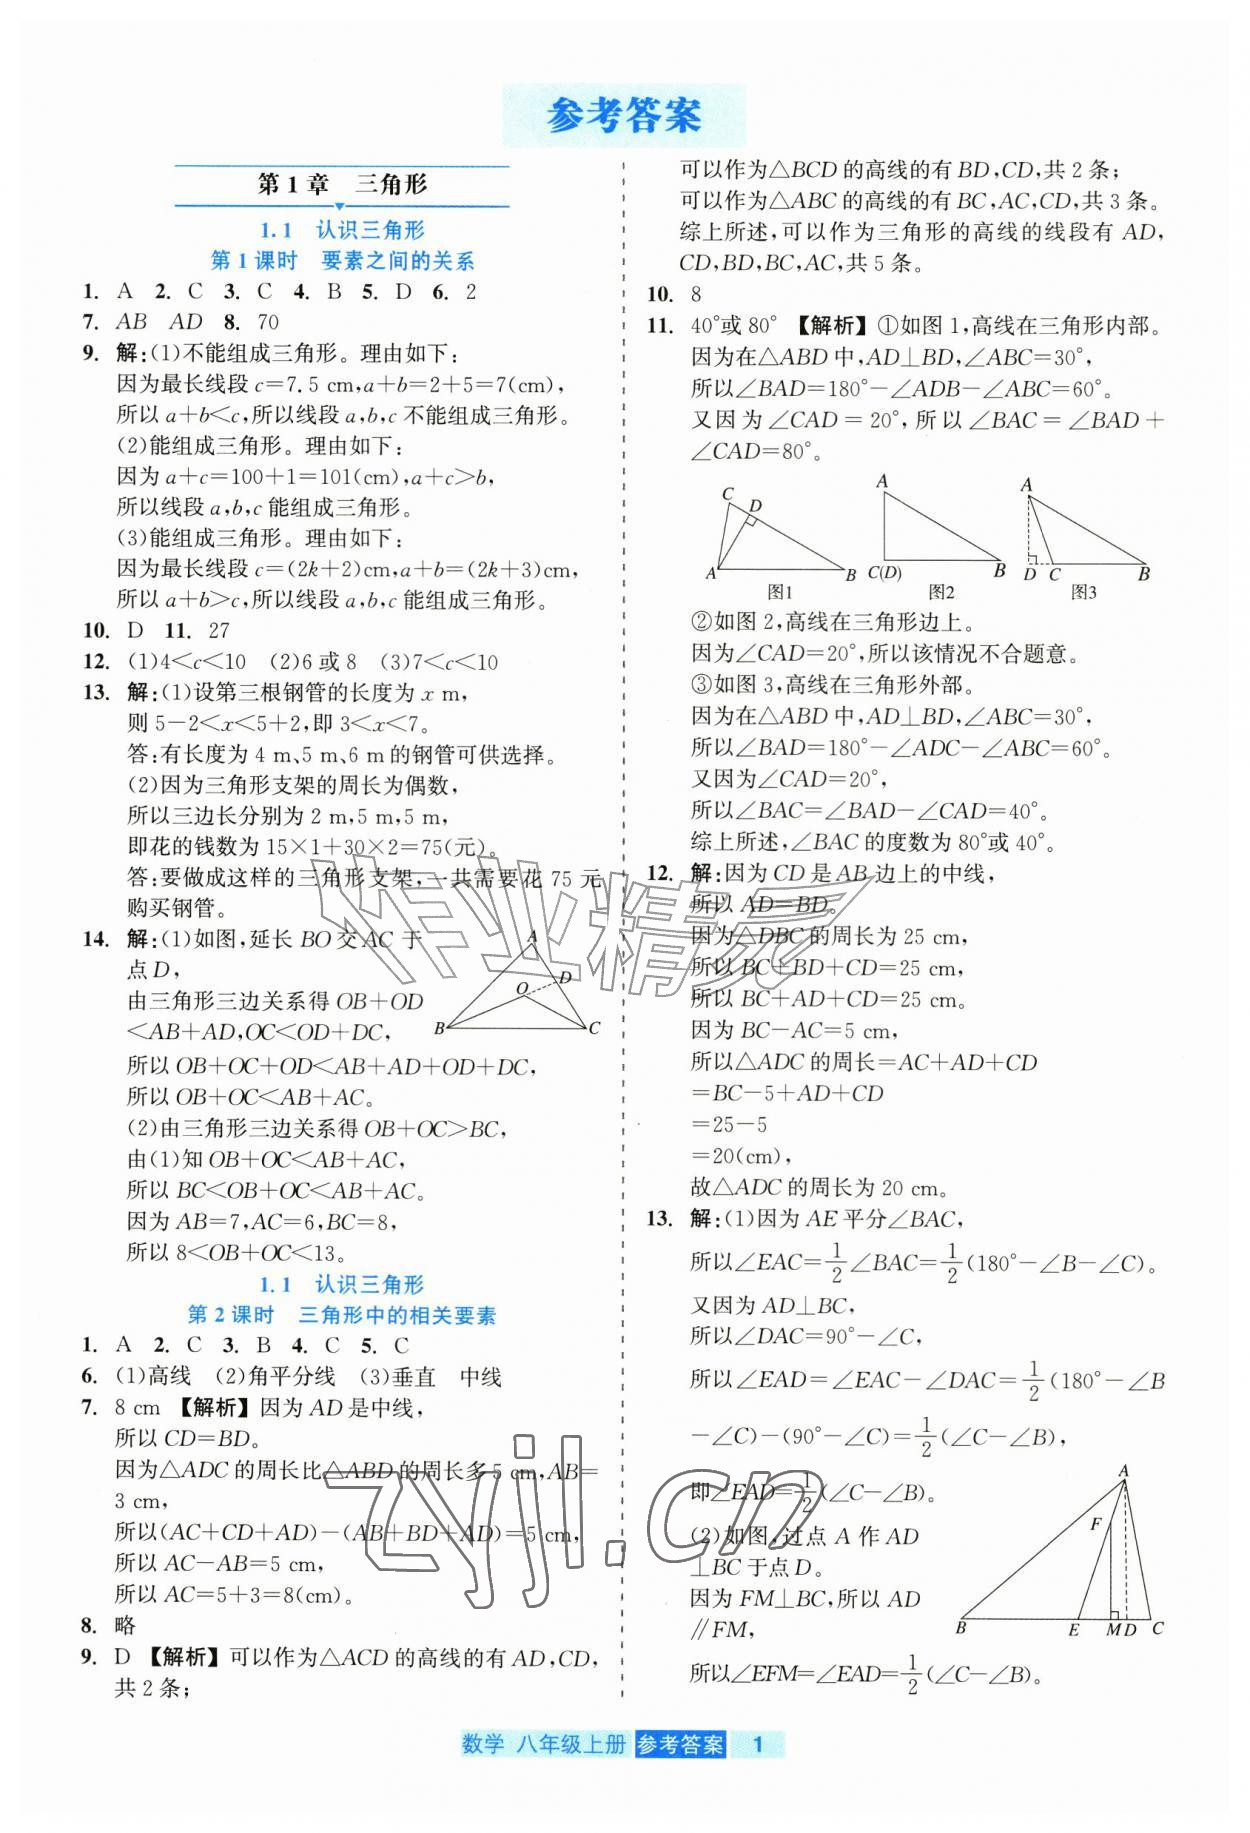 参考答案
第1章 三角形
1.1 认识三角形
第1课时 要素之间的关系
1. A 2. C 3. C 4. B 5. D 6. 2
7. AB AD 8. 70
9. 解:(1)不能组成三角形。理由如下:
因为最长线段c=7.5 cm,a+b=2+5=7(cm),
所以a+b<c,所以线段a,b,c不能组成三角形。
(2)能组成三角形。理由如下:
因为a+c=100+1=101(cm),a+c>b,
所以线段a,b,c能组成三角形。
(3)能组成三角形。理由如下:
因为最长线段c=(2k+2)cm,a+b=(2k+3)cm,
所以a+b>c,所以线段a,b,c能组成三角形。
10. D 11. 27
12. (1)4<c<10 (2)6或8 (3)7<c<10
13. 解:(1)设第三根钢管的长度为x m,
则5-2<x<5+2,即3<x<7。
答:有长度为4 m,5 m、6 m的钢管可供选择。
(2)因为三角形支架的周长为偶数,
所以三边长分别为2 m,5 m,5 m,
即花的钱数为15×1+30×2=75(元)。
答:要做成这样的三角形支架,一共需要花75元
购买钢管。
14. 解:(1)如图,延长BO交AC于
点D,
由三角形三边关系得OB+OD
<AB+AD,OC<OD+DC,
所以OB+OC+OD<AB+AD+OD+DC,
所以OB+OC<AB+AC。
(2)由三角形三边关系得OB+OC>BC,
由(1)知OB+OC<AB+AC,
所以BC<OB+OC<AB+AC。
因为AB=7,AC=6,BC=8,
所以8<OB+OC<13。
A
D
O
B
C
1.1 认识三角形
第2课时 三角形中的相关要素
1. A 2. C 3. B 4. C 5. C
6. (1)高线 (2)角平分线 (3)垂直 中线
7. 8 cm 【解析】因为AD是中线,
所以CD=BD。
因为△ADC的周长比△ABD的周长多5 cm,AB=
3 cm,
所以(AC+CD+AD)-(AB+BD+AD)=5 cm,
所以AC-AB=5 cm,
所以AC=5+3=8(cm)。
8. 略
9. D 【解析】可以作为△ACD的高线的有AD,CD,
共2条;
可以作为△BCD的高线的有BD,CD,共2条;
可以作为△ABC的高线的有BC,AC,CD,共3条。
综上所述,可以作为三角形的高线的线段有AD,
CD,BD,BC,AC,共5条。
10. 8
11. 40°或80° 【解析】①如图1,高线在三角形内部。
因为在△ABD中,AD⊥BD,∠ABC=30°,
所以∠BAD=180°-∠ADB-∠ABC=60°。
又因为∠CAD=20°,所以∠BAC=∠BAD+
∠CAD=80°。
C D A B 图1
A C(D) B 图2
A D C B 图3
②如图2,高线在三角形边上。
因为∠CAD=20°,所以该情况不合题意。
③如图3,高线在三角形外部。
因为在△ABD中,AD⊥BD,∠ABC=30°,
所以∠BAD=180°-∠ADC-∠ABC=60°。
又因为∠CAD=20°,
所以∠BAC=∠BAD-∠CAD=40°。
综上所述,∠BAC的度数为80°或40°。
12. 解:因为CD是AB边上的中线,
所以AD=BD。
因为△DBC的周长为25 cm,
所以BC+BD+CD=25 cm,
所以BC+AD+CD=25 cm。
因为BC-AC=5 cm,
所以△ADC的周长=AC+AD+CD
=BC-5+AD+CD
=25-5
=20(cm),
故△ADC的周长为20 cm。
13. 解:(1)因为AE平分∠BAC,
所以∠EAC=1/2∠BAC=1/2(180°-∠B-∠C)。
又因为AD⊥BC,
所以∠DAC=90°-∠C,
所以∠EAD=∠EAC-∠DAC=1/2(180°-∠B
-∠C)-(90°-∠C)=1/2(∠C-∠B),
即∠EAD=1/2(∠C-∠B)。
(2)如图,过点A作AD
⊥BC于点D。
因为FM⊥BC,所以AD
∥FM,
所以∠EFM=∠EAD=1/2(∠C-∠B)。
A
F
B E M D C
作业精灵
zyjl.cn
数学 八年级上册 参考答案 1